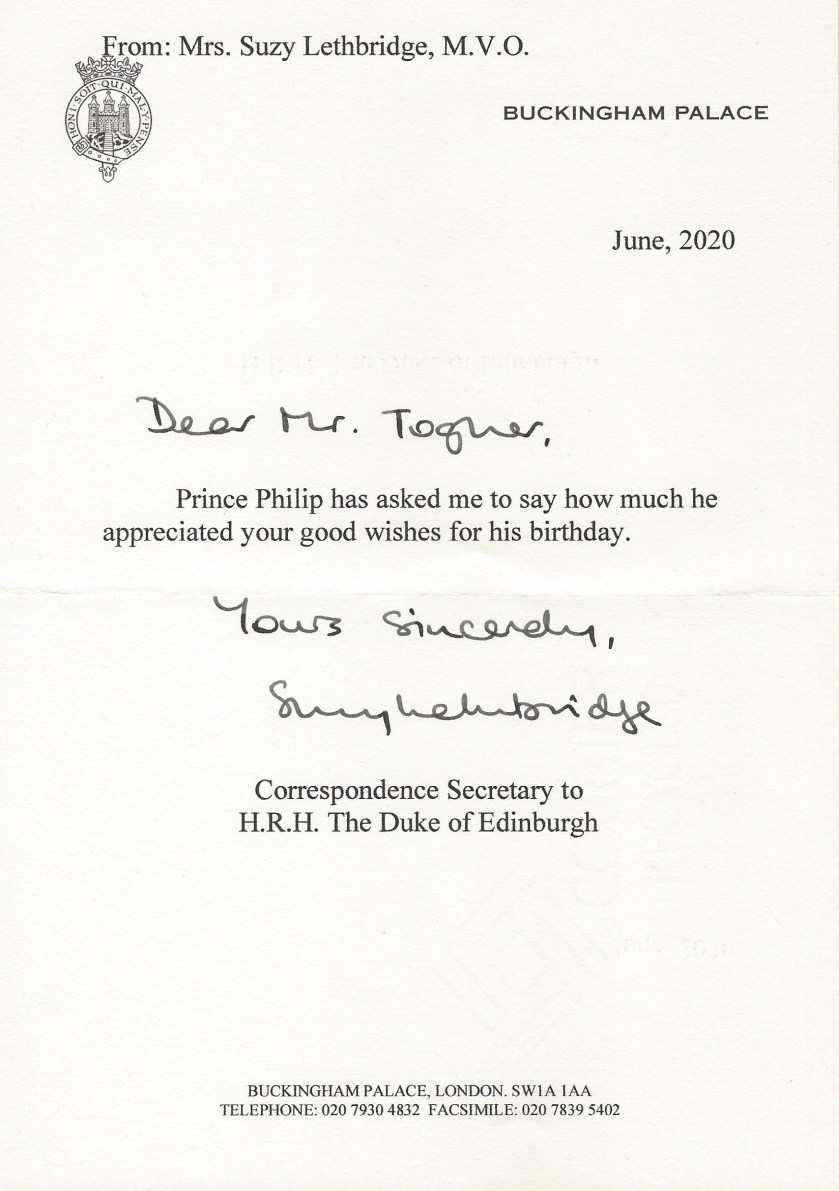 From: Mrs. Suzy Lethbridge, M.V.O.
HONI·SOIT·QUI·MAL·Y·PENSE
BUCKINGHAM PALACE
June, 2020
Dear Mr. Togher,
Prince Philip has asked me to say how much he
appreciated your good wishes for his birthday.
Yours Sincerely,
Suzy Lethbridge
Correspondence Secretary to
H.R.H. The Duke of Edinburgh
BUCKINGHAM PALACE, LONDON. SW1A 1AA
TELEPHONE: 020 7930 4832 FACSIMILE: 020 7839 5402